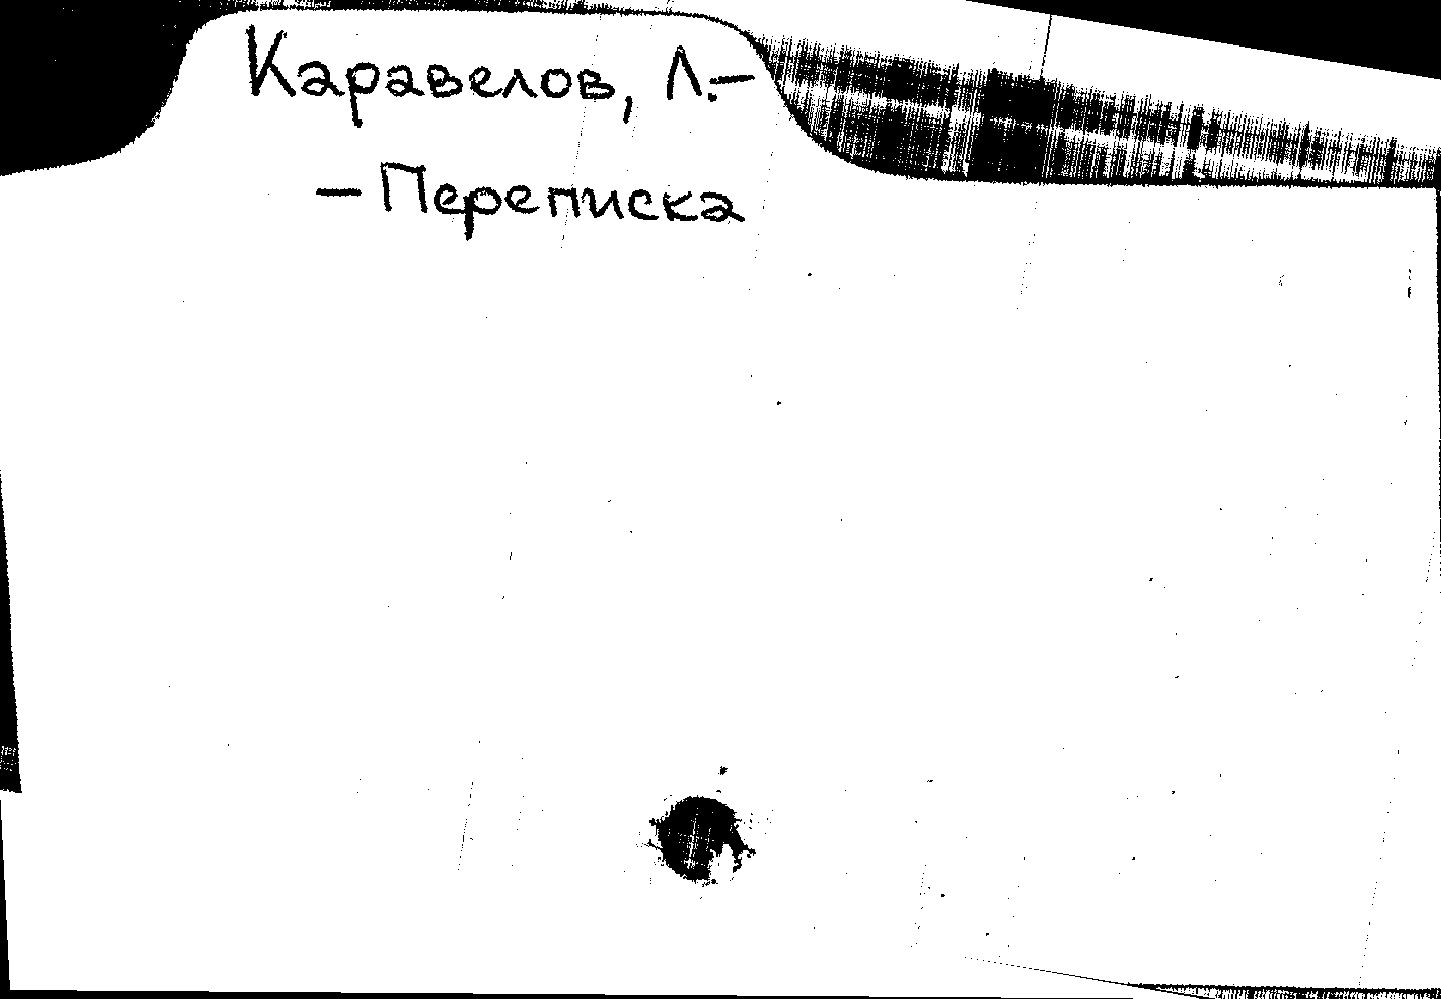 Каравелов, Л.–
– Переписка